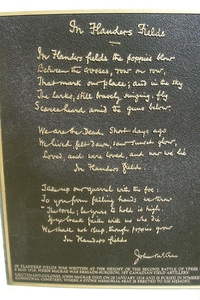 In Flanders Fields
In Flanders fields the poppies blow
Between the crosses, row on row,
That mark our place; and in the sky
The larks, still bravely singing, fly
Scarce heard amid the guns below.
We are the Dead. Short days ago
We lived, felt dawn, saw sunset glow,
Loved, and were loved, and now we lie
In Flanders fields.
Take up our quarrel with the foe:
To you from failing hands we throw
The torch; be yours to hold it high.
If ye break faith with us who die
We shall not sleep, though poppies grow
In Flanders fields
John McCrae
IN FLANDERS FIELDS WAS WRITTEN AT THE HEIGHT OF THE SECOND BATTLE OF YPRES
LIEUTENANT-COLONEL JOHN MCCRAE DIED ON 28 JANUARY 1918 AND IS BURIED IN WIMEREUX